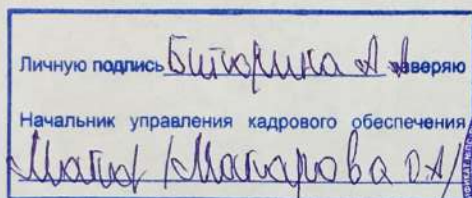 Личную подпись Битюрина А А заверяю
Начальник управления кадрового обеспечения
Макарова О.А/